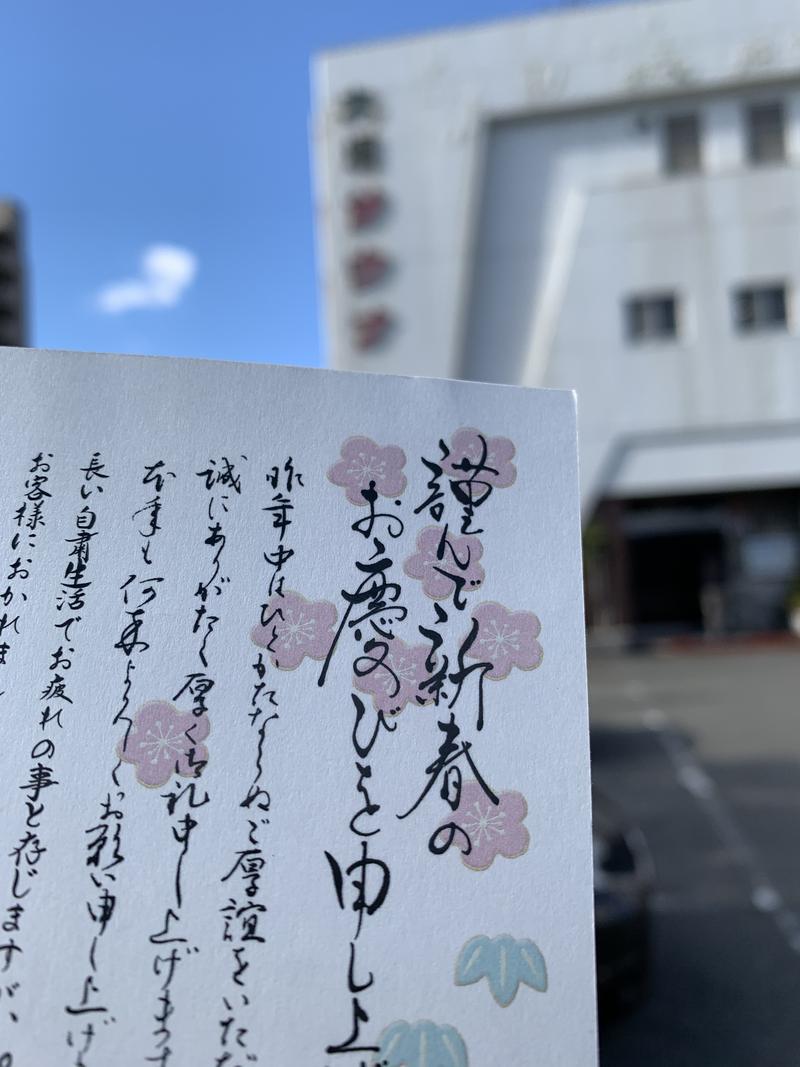 謹んで新春の
お慶びを申し上げ
昨年中はひとかたならぬご厚誼をいただ
誠にありがたく厚く御礼申し上げます
本年も何卒よろしくお願い申し上げ
長い自粛生活でお疲れの事と存じますが、
お客様におかれま